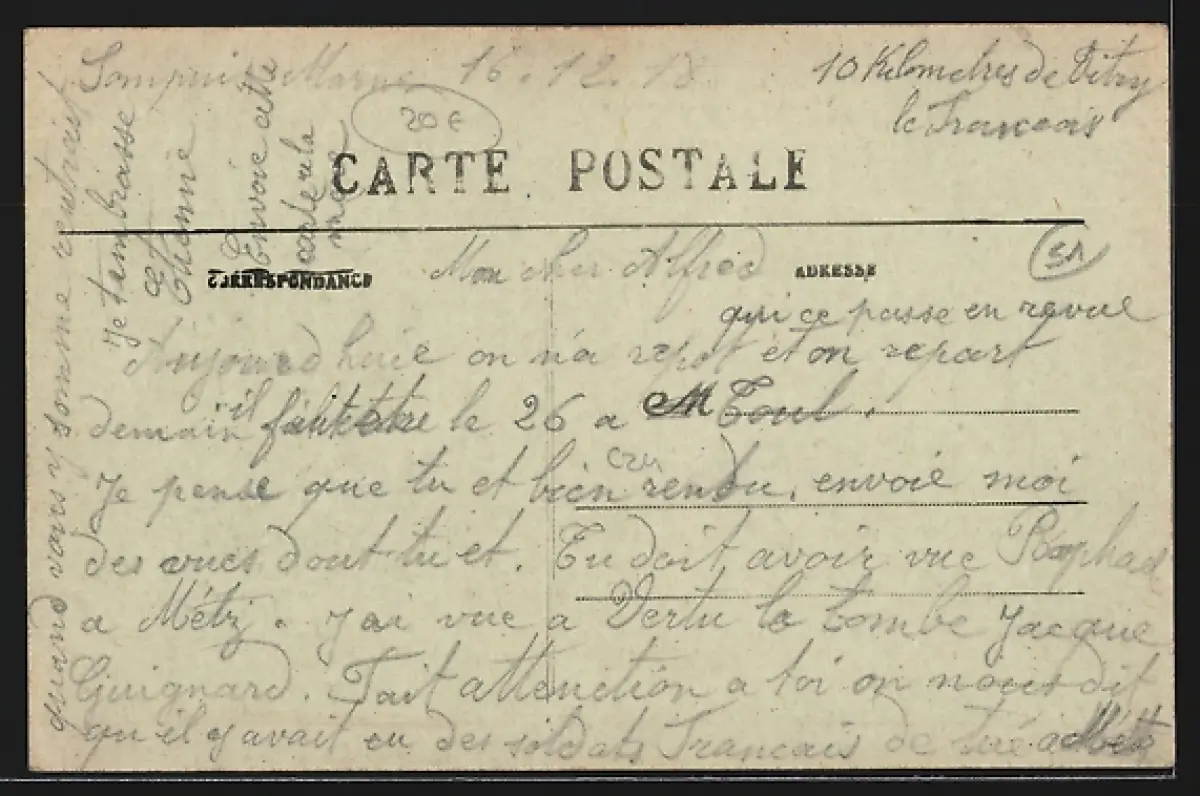 Sompuis Marne 16.12.18
10 Kilometres de Vitry
le Francois
20 €
CARTE POSTALE
CORRESPONDANCE
ADRESSE
51
Mon cher Alfred
qui ce passe en revue
Aujourd huie on n'a repot et on repart
demain il faut etre le 26 a Toul.
Je pense que tu et bien rendu, envoie moi
des vues dout tu et. Tu doit avoir vue Raphael
a Métz. J'ai vue a Vertu la tombe Jacque
Guignard. Fait attenction a toi on nous dit
qu'il y avait eu des soldats Francais de tué a Métz
quand nous y somme rentrait
Je t'embrasse
Etienne
Envoie cette
carte a la